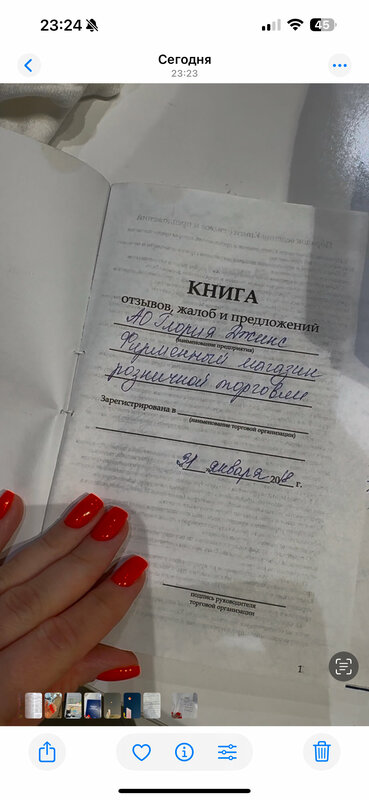 23:24
45
Сегодня
23:23
КНИГА
отзывов, жалоб и предложений
АО Глория Джинс
(наименование предприятия)
Фирменный магазин
розничной торговли
Зарегистрирована в
(наименование торговой организации)
21 января 2018 г.
подпись руководителя
торговой организации
1